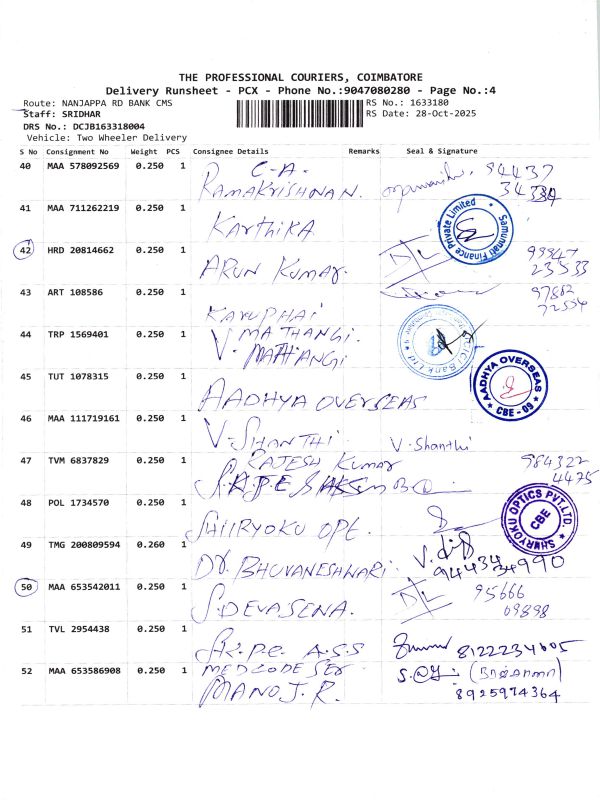 THE PROFESSIONAL COURIERS, COIMBATORE
Delivery Runsheet - PCX - Phone No.:9047080280 - Page No.:4
Route: NANJAPPA RD BANK CMS
RS No.: 1633180
Staff: SRIDHAR
RS Date: 28-Oct-2025
DRS No.: DCJB163318004
Vehicle: Two Wheeler Delivery
S No Consignment No Weight PCS Consignee Details Remarks Seal & Signature
40 MAA 578092569 0.250 1 C-A. 94437
RAMAKRISHNAN.
41 MAA 711262219 0.250 1 KARTHIKA
Samunnati Finance Private Limited
42 HRD 20814662 0.250 1 ARUN KUMAR. D/L 99947
23533
43 ART 108586 0.250 1 KARUPHAI 97882
44 TRP 1569401 0.250 1 V. MATHANGI.
MATHANGI
ICICI Bank Ltd
45 TUT 1078315 0.250 1 AADHYA OVERSEAS
AADHYA OVERSEAS
CBE - 09
46 MAA 111719161 0.250 1 V. SHANTHI V. Shanthi
47 TVM 6837829 0.250 1 RAJESH KUMAR 984322
4475
48 POL 1734570 0.250 1 SHIIRYOKU OPT.
SHIIRYOKU OPTICS PVT.LTD.
CBE
49 TMG 200809594 0.260 1 DR. BHUVANESHWARI.
94434 34990
50 MAA 653542011 0.250 1 S.DEVASENA. D/L 95666
09898
51 TVL 2954438 0.250 1 A.S.S 8122234605
52 MAA 653586908 0.250 1 MEDCODE
MANOJ. R.
8925974364